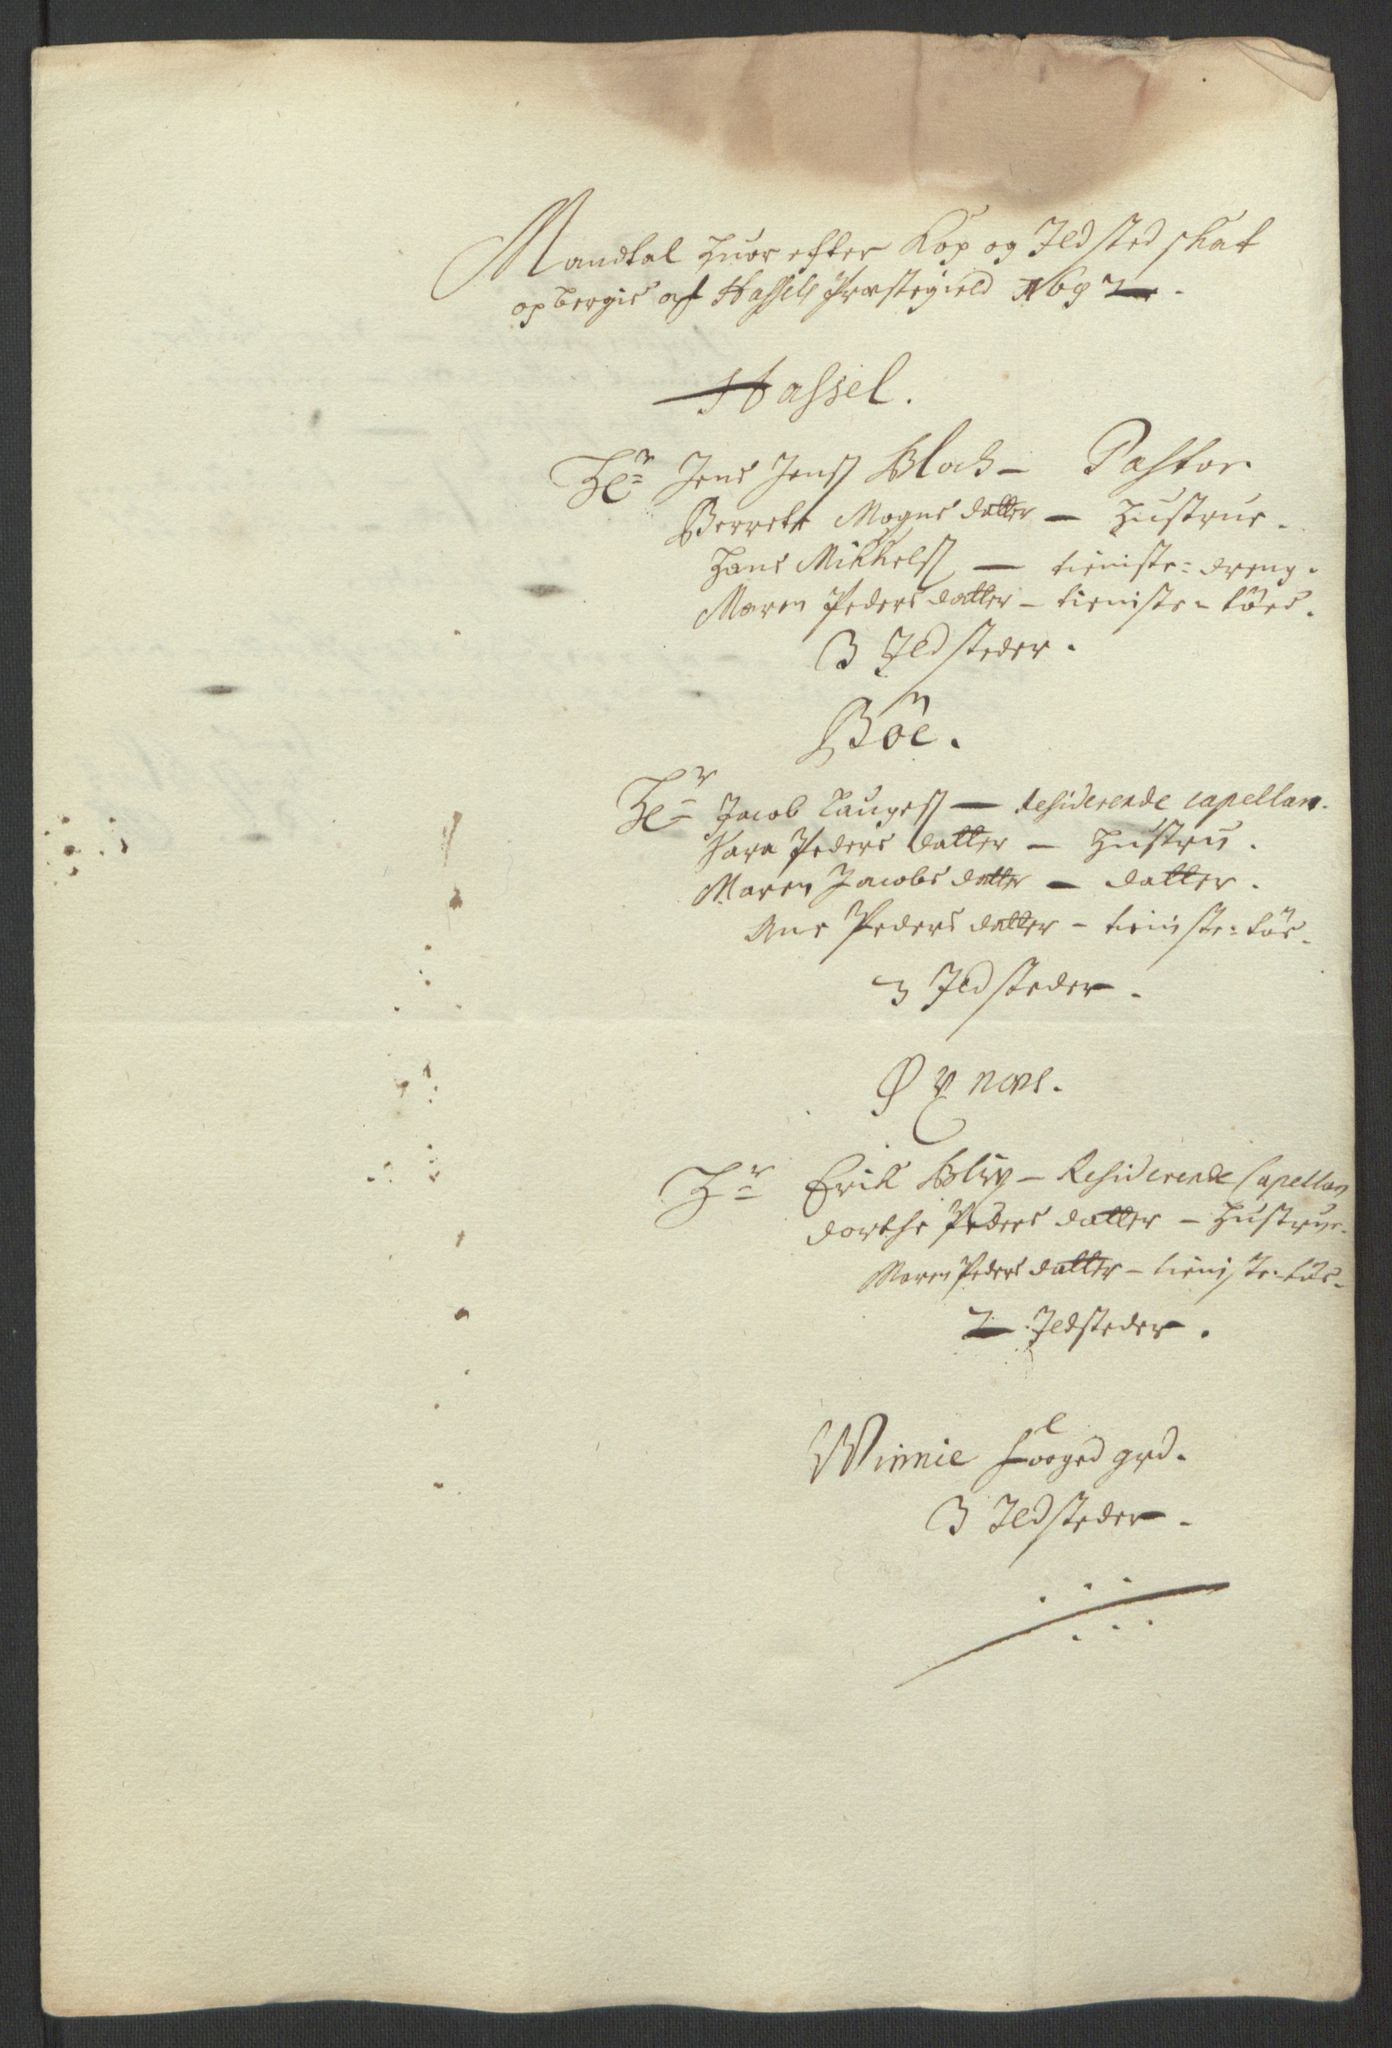 Mandtal huor efter Kop og Jldsted skat
opbergis af Hassels Præstegield 1692.
Hassel.
Hr Jens Jenss Block – Pastor
Berrete Mogns datter – hustrue.
Hans Mikkelss – tieniste-dreng.
Maren Peders datter – tieniste-töes.
3 Jldsteder.
Böe.
Hr Jacob Laugess – Residerende capellan.
Sara Peders datter – hustru.
Maren Jacobs datter – datter.
Ane Peders datter – tieniste-tös.
3 Jldsteder.
Øxnæs.
Hr Erik – Residerende Capellan
dorthe Peders datter – hustrue.
Maren Peders datter – tieniste-tös.
2 Jldsteder.
Winnie grd.
3 Jldsteder.